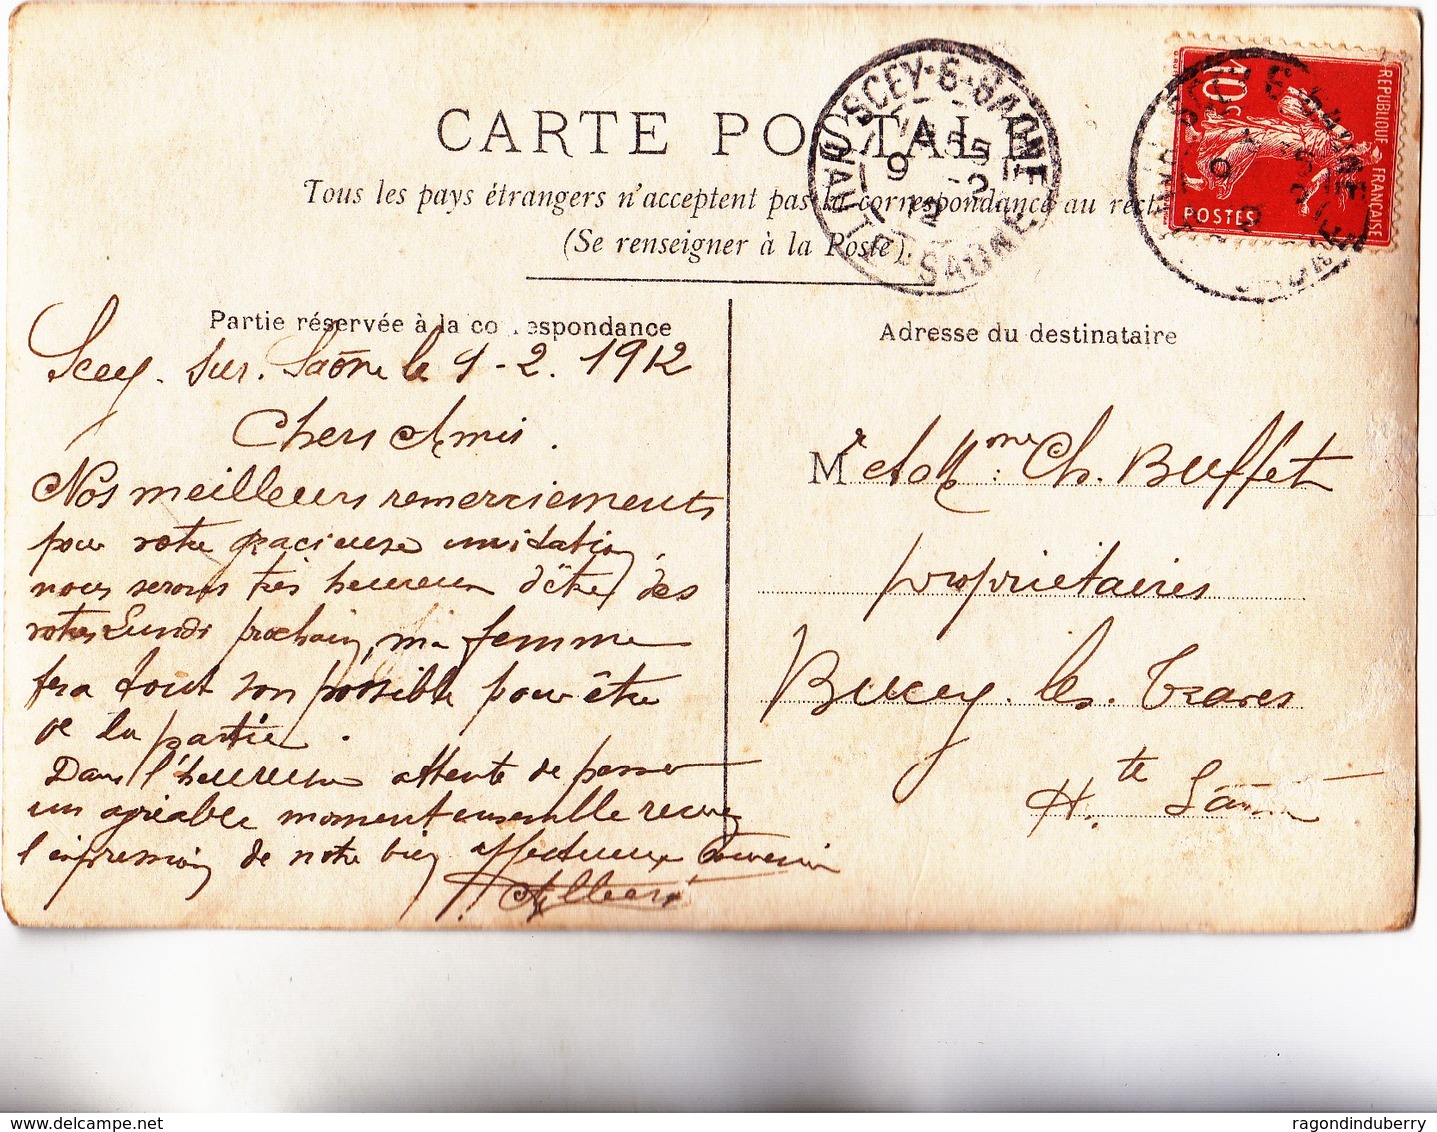 CARTE POSTALE
Tous les pays étrangers n'acceptent pas la correspondance au recto
(Se renseigner à la Poste).
SCEY-S-SAONE
9 -2 12
HAUTE SAONE
RÉPUBLIQUE FRANÇAISE
10
POSTES
Partie réservée à la correspondance
Scey. sur. Saône le 9-2. 1912
Chers Amis.
Nos meilleurs remerciements
pour votre gracieuse invitation,
nous serons très heureux d'être des
votres Lundi prochain, ma femme
fera tout son possible pour être
de la partie.
Dans l'heureuse attente de passer
un agréable moment ensemble recevez
l'expression de notre bien affectueux Souvenir
Albert
Adresse du destinataire
Mr et Mme Ch. Buffet
propriétaires
Bucey. les. Traves
Hte Saône
ragondinduberry